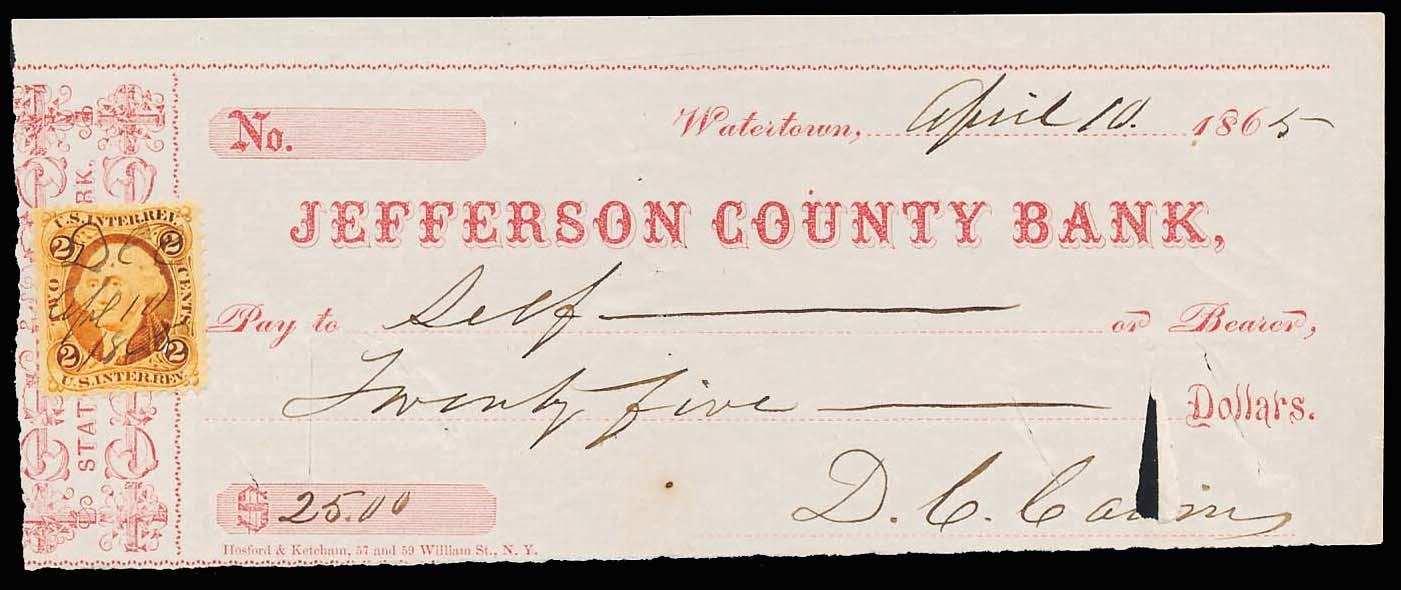 No. Watertown, April 10. 1865
JEFFERSON COUNTY BANK,
Pay to Self or Bearer,
Twenty five Dollars.
$ 25.00 D. C.
Hosford & Ketcham, 57 and 59 William St., N. Y.
U.S. INTER. REV.
2 2
D. C. C
TWO CENTS
10
186
2 2
U.S. INTER. REV.
STAT
RK.